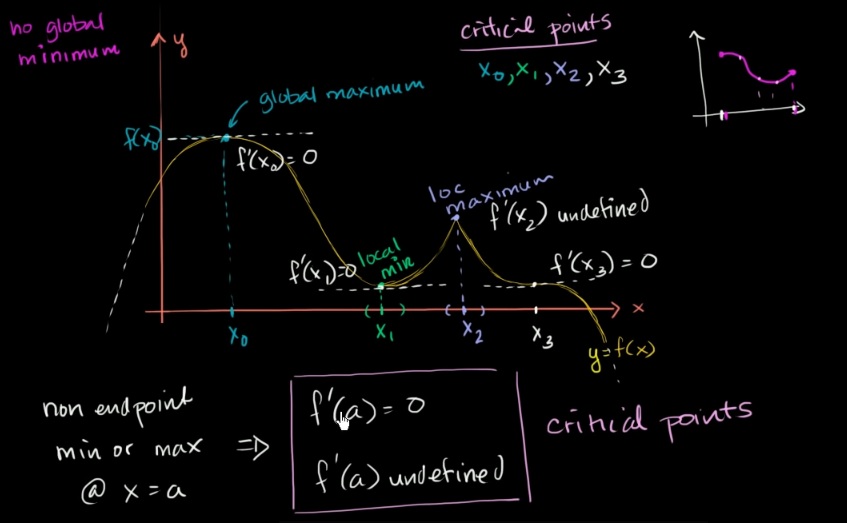 no global
minimum
y
critical points
x₀, x₁, x₂, x₃
global maximum
f(x₀)
f'(x₀) = 0
loc
maximum
f'(x₂) undefined
local
min
f'(x₁)=0
f'(x₃) = 0
x
( )
( )
x₀
x₁
x₂
x₃
y=f(x)
non endpoint
min or max
@ x = a
⇒
f'(a) = 0
f'(a) undefined
critical points